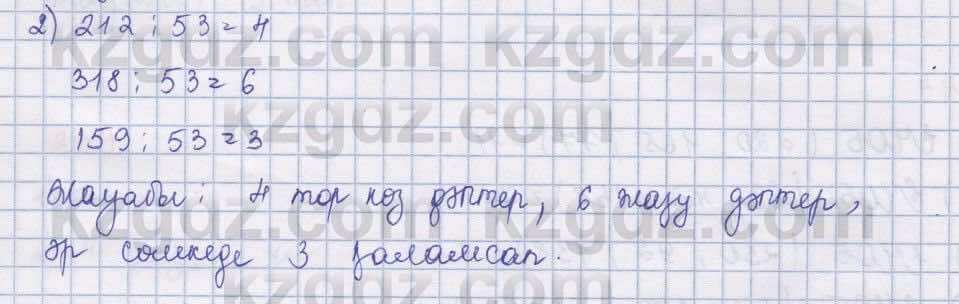 2) 212 : 53 = 4
318 : 53 = 6
159 : 53 = 3
Жауабы: 4 тор көз дәптер, 6 жазу дәптер,
әр сөмкеде 3 қаламсап.
kzgdz.com kzgdz.com
kzgdz.com
kzgdz.com kzgdz.com
kzgdz.com